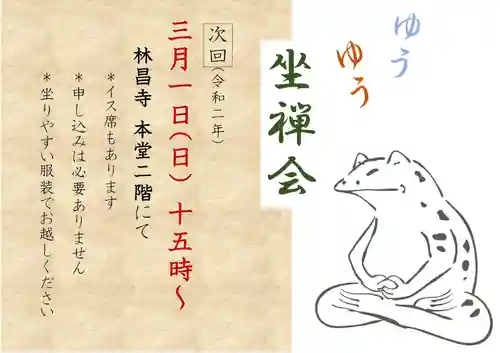 ゆう
ゆう
坐禅会
次回(令和二年)
三月一日(日) 十五時~
林昌寺 本堂二階にて
*イス席もあります
*申し込みは必要ありません
*坐りやすい服装でお越しください